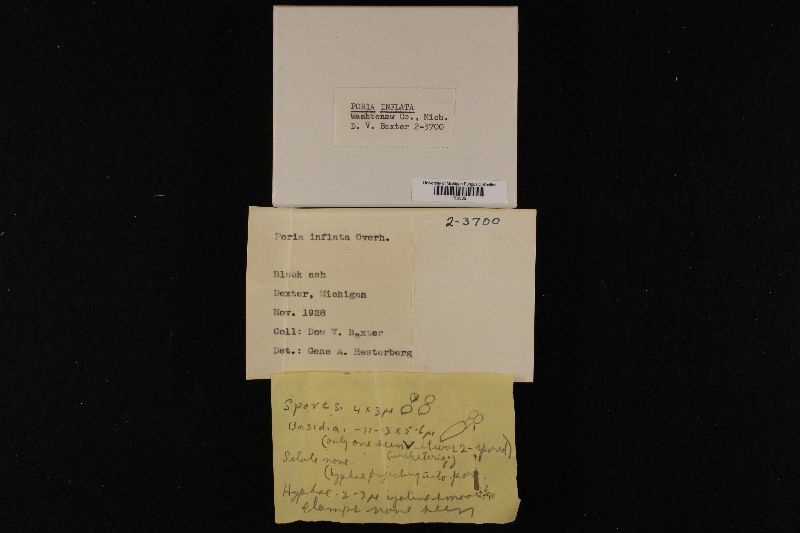 PORIA INFLATA
Washtenaw Co., Mich.
D. V. Baxter 2-3700
University of Michigan Fungus Collection
2-3700
Poria inflata Overh.
Black ash
Dexter, Michigan
Nov. 1928
Coll: Dow V. Baxter
Det.: Gene A. Hesterberg
Spores 4 x 3 μ
Basidia. -11-13 x 5-6 μ
(only one seen it was 2-spored)
Setale none.
(hyphae projecting into pore
Hyphae. 2-3 μ hyaline
clamps none seen